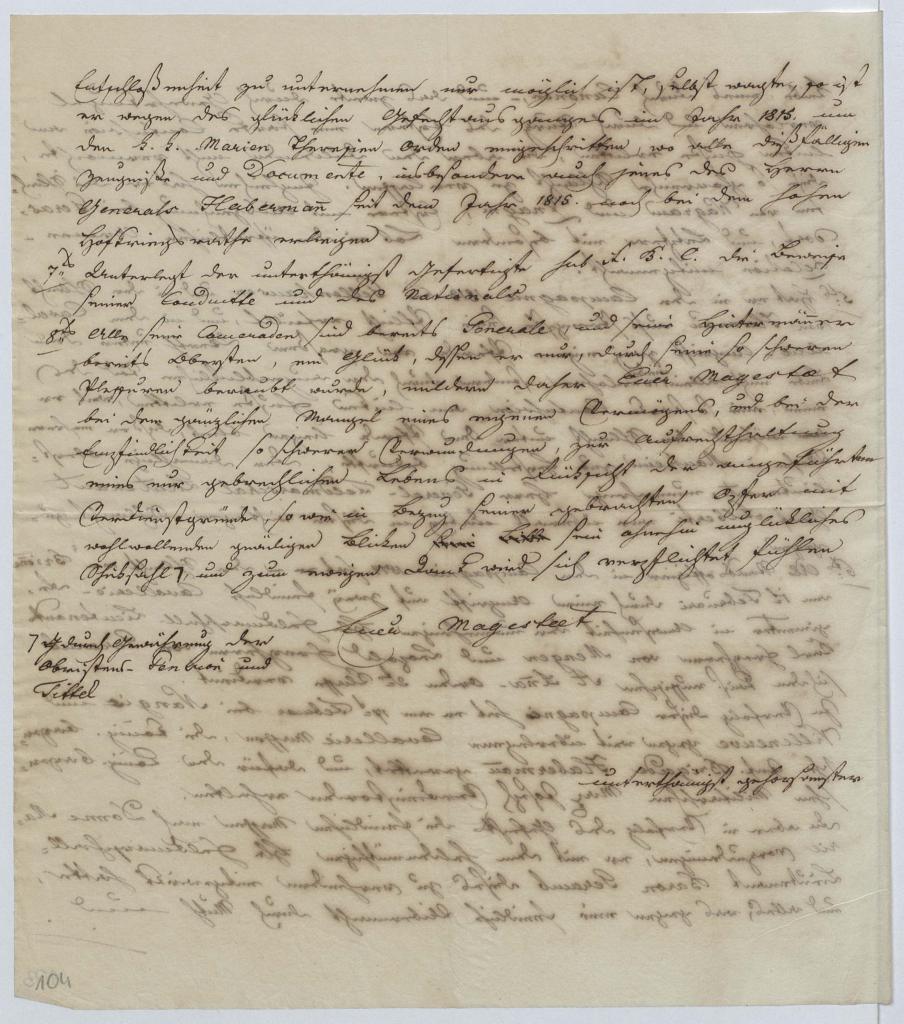 Entschloßenheit zu unternehmen nur möglich ist, selbst wagte, so ist
er wegen des glücklichen Gefechtausganges im Jahr 1815. um
den k. k. Marien Theresien Orden eingeschritten, wo alle dießfälligen
Zeugniße und Documente, insbesondere auch jenes des Herrn
Generals Habermañ seit dem Jahr 1815. noch bei dem hohen
Hofkriegsrathe erliegen
7tens Unterlegt der unterthänigst Gefertigte sub die Beweise
seiner Conduitte und des Nationals
8tens Alle seine Cameraden sind bereits Generäle, und seine Hintermänner
bereits Obersten, ein Glück, dessen er nur, durch seine so schweren
Plessuren beraubt wurde, mildern daher Euer Magestaet
bei dem gänzlichen Mangel eines eigenen Vermögens, und bei der
Empfindlichkeit so schwerer Verwundungen, zur Aufrechthaltung
eines nur gebrechlichen Lebens in Rüksicht der angeführten
Verdienstgründe, so wie in Bezug seiner gebrachten Opfer mit
wohlwollenden gnädigen Bliken seine Bitte sein ohnehin unglükliches
Schiksahl 7, und zum ewigen Dank wird sich verpflichtet fühlen
Euer Magestaet
7 durch Gewährung der
Obristens-Pension und
Tittel
unterthänigst gehorsamster
104